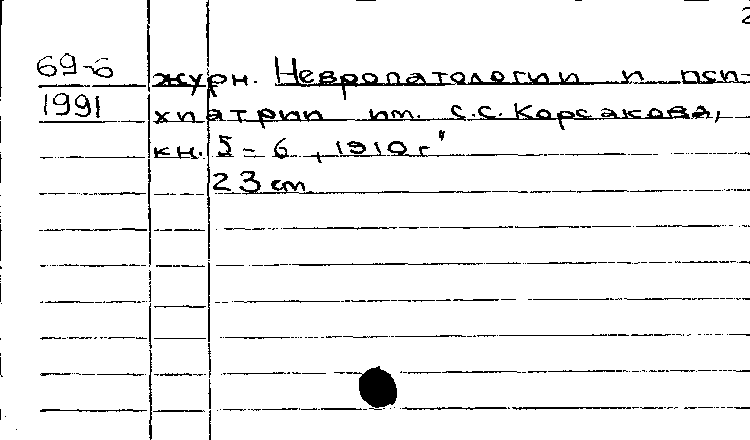 2
69-6 журн. Невропатологии и пси-
1991 хиатрии им. С.С. Корсакова,
кн. 5-6, 1910 г"
23 cm